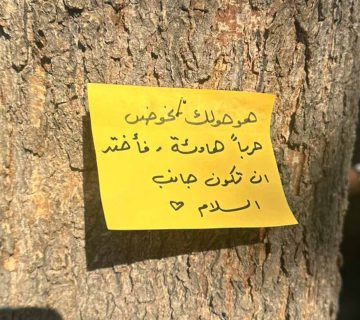 من حولك يخوض
حرباً هادئة، فأختر
ان تكون جانب
السلام ♡